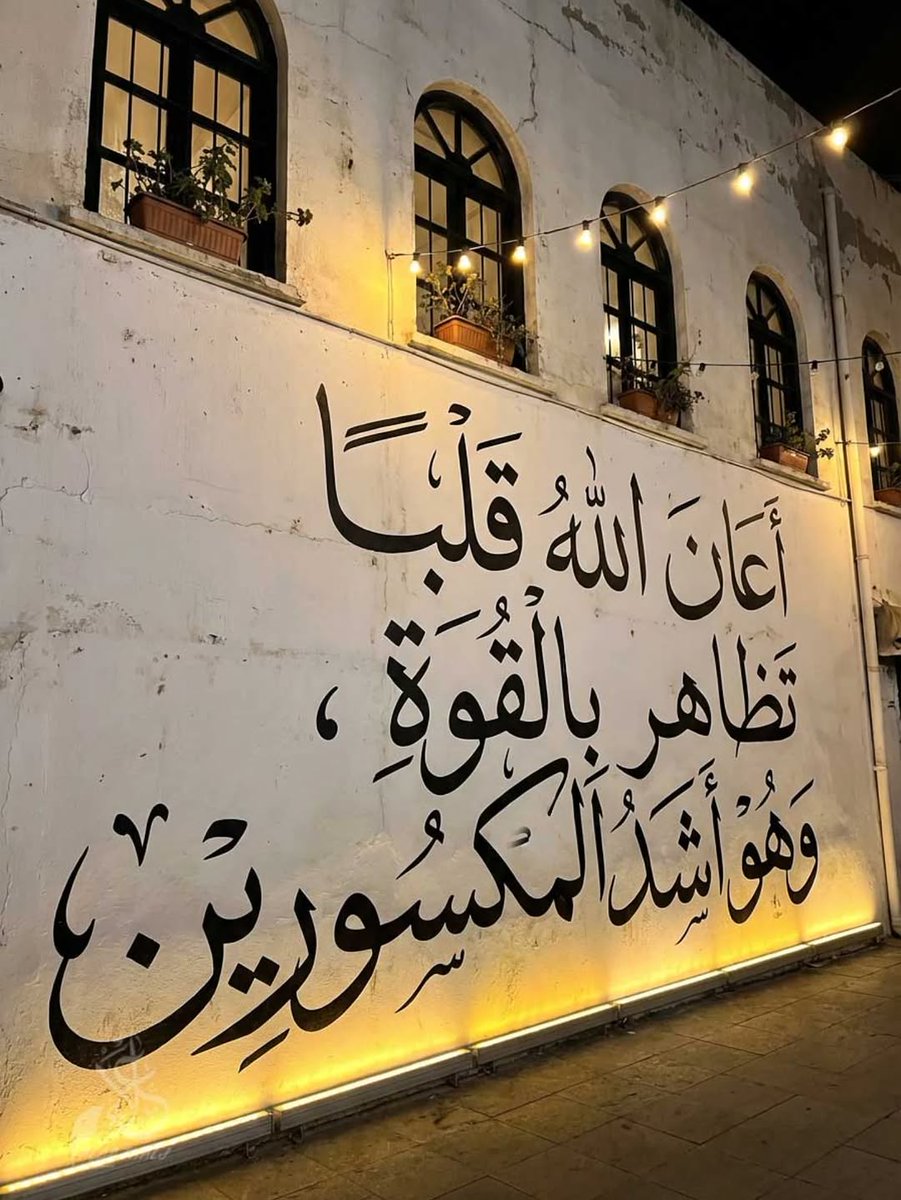 أَعَانَ اللهُ قَلْبًا
تَظاهر بِالْقُوَةِ ،
وَهُوْ أَشَدُ اَلمَكسُورِيْن